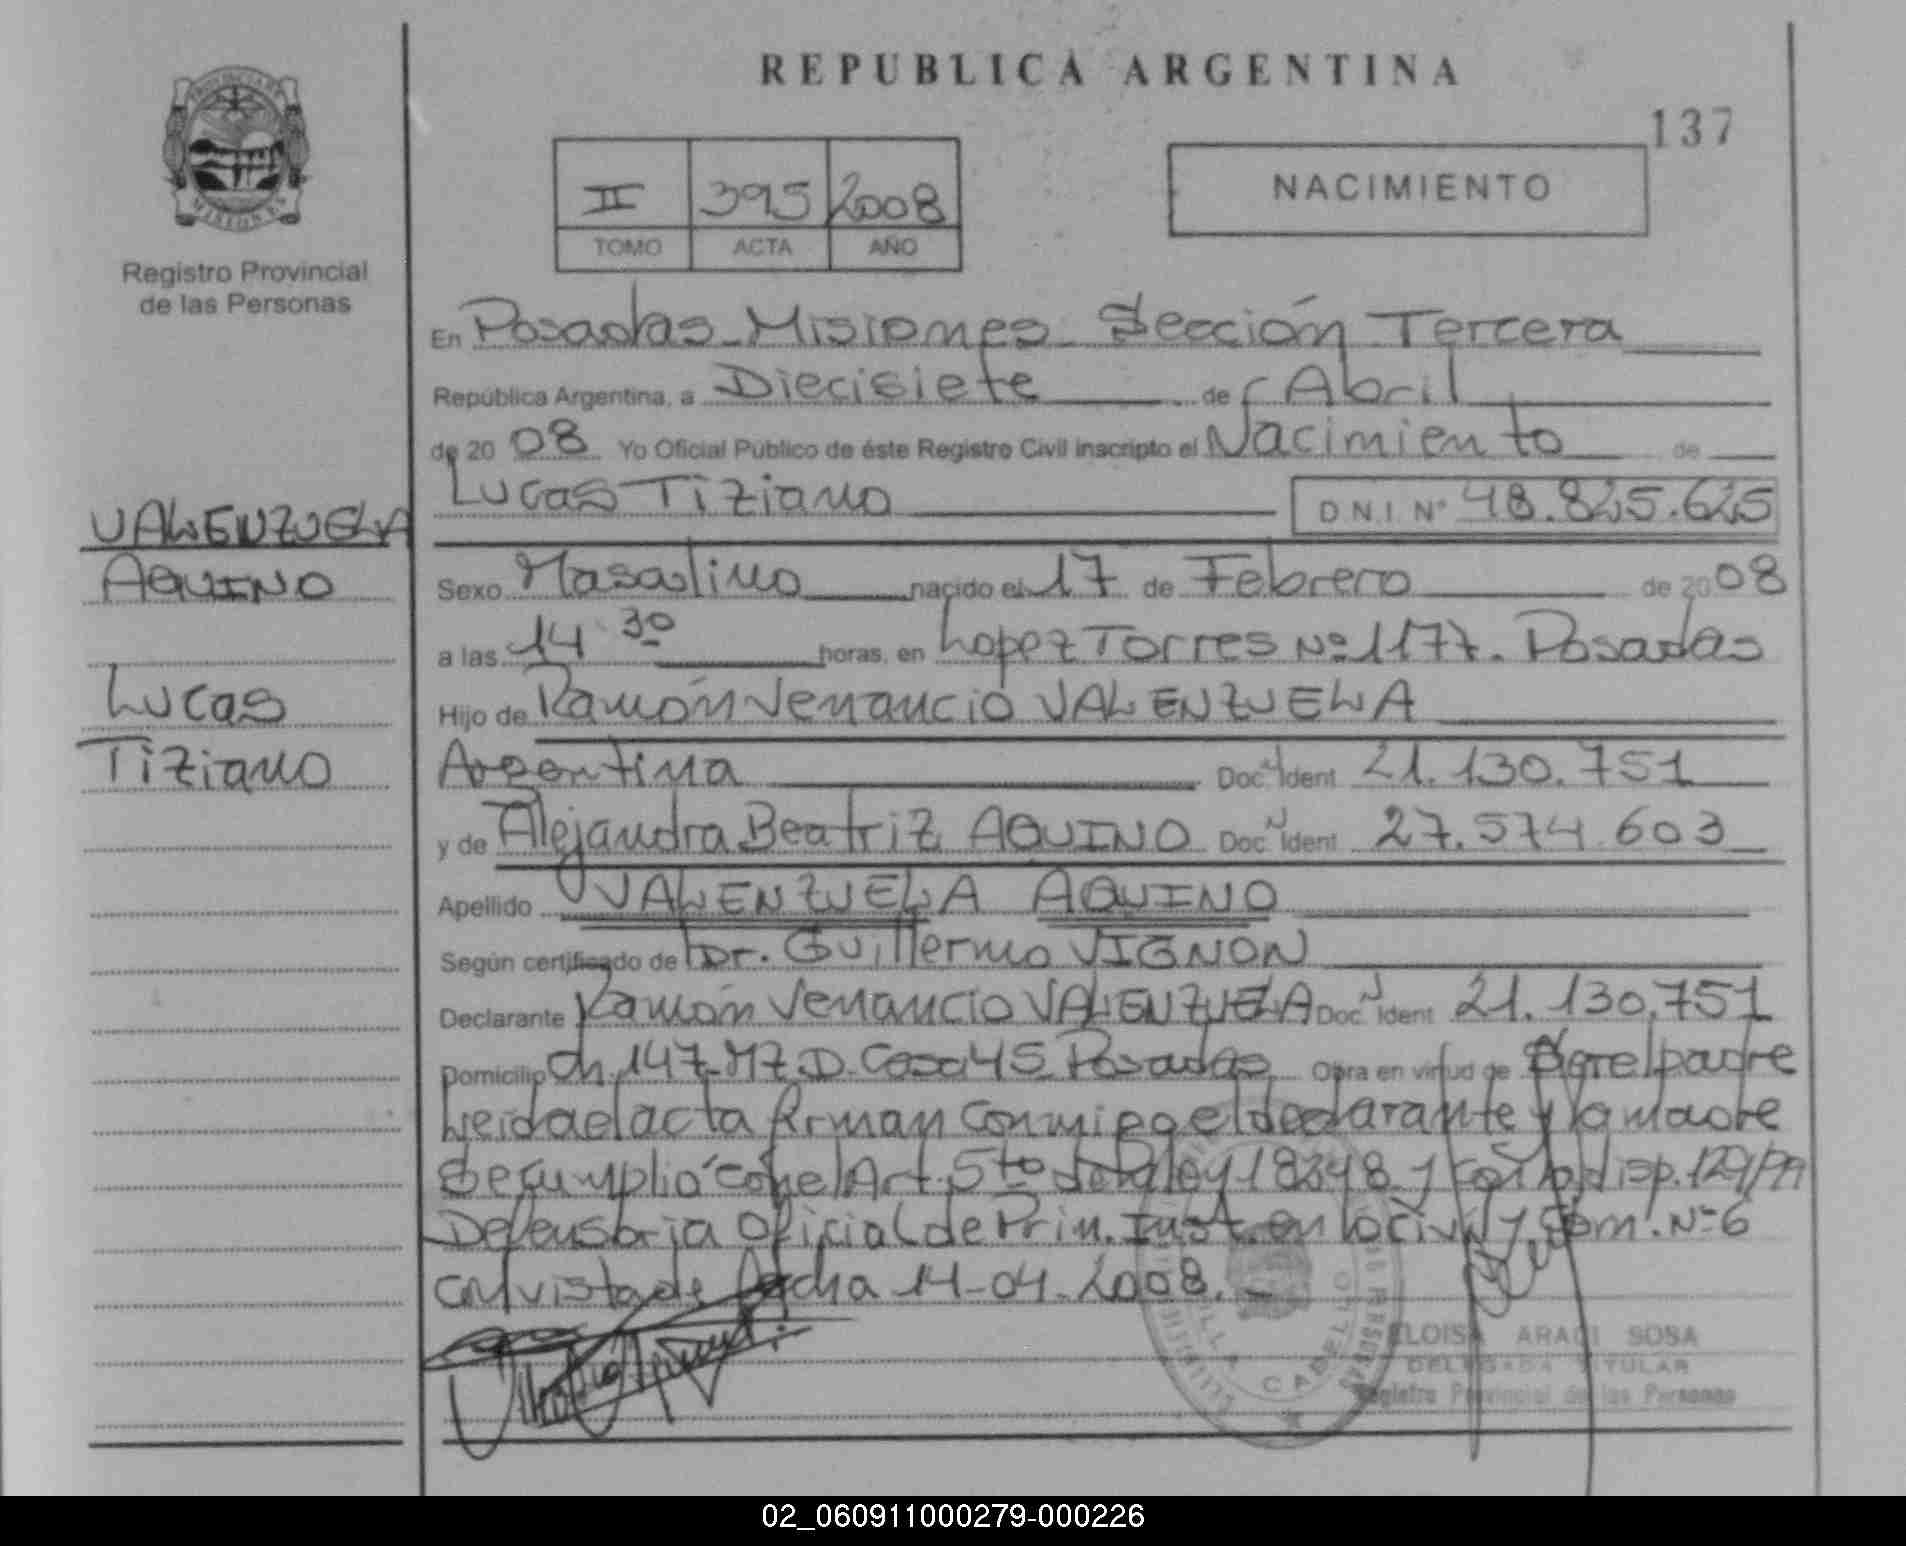 REPUBLICA ARGENTINA
137
PROVINCIA DE
MISIONES
Registro Provincial
de las Personas
II 395 2008
TOMO ACTA AÑO
NACIMIENTO
En Posadas - Misiones - Sección Tercera
República Argentina, a Diecisiete de Abril
de 20 08 Yo Oficial Público de éste Registro Civil inscripto el Nacimiento de
Lucas Tiziano D N.I. N° 48.825.625
VALENZUELA
AQUINO
Lucas
Tiziano
Sexo Masculino nacido el 17 de Febrero de 2008
a las 14 30 horas, en Lopez Torres Nº 1177. Posadas
Hijo de Ramón Venancio VALENZUELA
Argentina Doc. Ident 21.130.751
y de Alejandra Beatriz AQUINO Doc. Ident 27.574.603
Apellido VALENZUELA AQUINO
Según certificado de Dr. Guillermo VIGNON
Declarante Ramón Venancio VALENZUELA Doc. Ident 21.130.751
Domicilio Ch. 147-Mz D. Casa 45 Posadas Obra en virtud de Ser el padre
Leida el acta firman conmigo el declarante y la madre
Se cumplió con el Art. 5to de la ley 18248 y con la disp. 129/99
Defensoria Oficial de Prim. Inst. en lo civil y Com. Nº 6
en vista de fecha 14-04-2008.-
ELOISA ARACI SOSA
DELEGADA TITULAR
Registro Provincial de las Personas
02_060911000279-000226